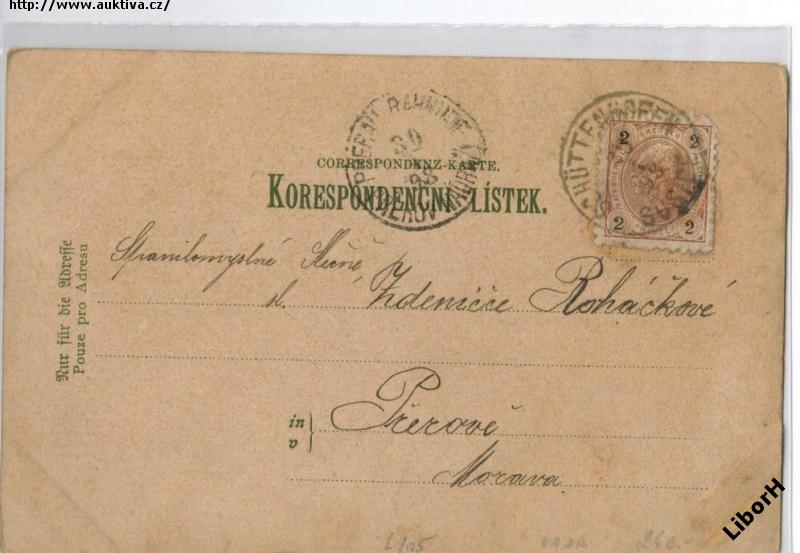 http://www.auktiva.cz/
PRERAU BAHNHOF
30
98
CORRESPONDENZ-KARTE.
KORESPONDENČNÍ LÍSTEK.
SCHÜTTENHOFEN
98
2 2
2 2
Nur für die Adresse
Pouze pro Adresu
Spanilomyslné Slečně,
sl. Zdeničce Roháčkové
in
v
Přerově
Morava
L105
260.-
LiborH